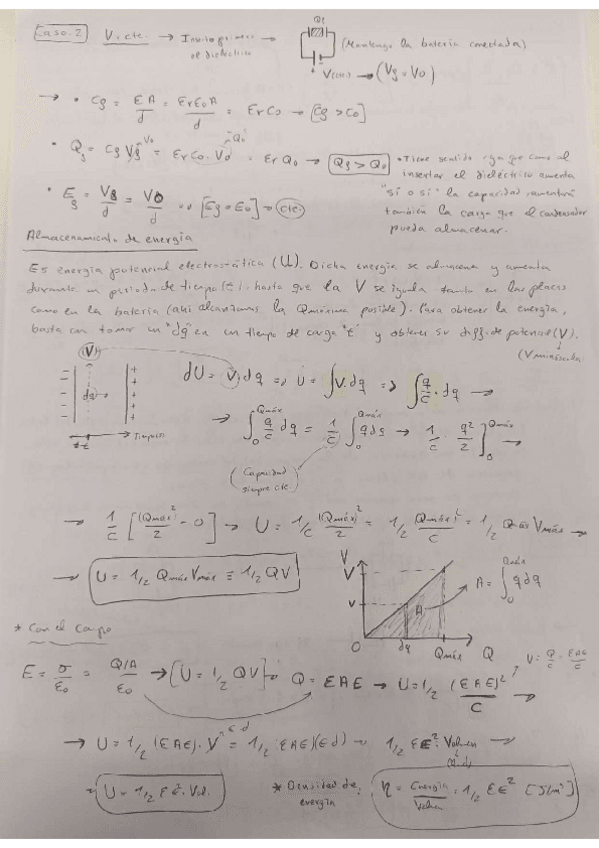 Caso. 2 V. cte. → Inserto primero el dieléctrico → Qf (Mantengo la batería conectada)
+ V(cte) → (Vf = V0)
→ • Cf = εA/d = εrε0A/d = εrC0 → [Cf > C0]
• Qf = Cf Vf = εrC0·V0 = εrQ0 → [Qf > Q0] • Tiene sentido ya que como al
insertar el dieléctrico aumenta
"sí o sí" la capacidad, aumentará
• Ef = Vf/d = V0/d => [Ef = E0] = cte. también la carga que el condensador
pueda almacenar.
Almacenamiento de energía
Es energía potencial electrostática (U). Dicha energía se almacena y aumenta
durante un periodo de tiempo (t), hasta que la V se iguala tanto en las placas
como en la batería (ahí alcanzamos la Qmáxima posible). Para obtener la energía,
basta con tomar un "dq" en un tiempo de carga "t" y obtener su diff. de potencial (V).
(V minúscula)
(V)
dq
dU = V dq => U = ∫V·dq => ∫q/c · dq →
→ ∫₀^Qmáx q/c dq = 1/c ∫₀^Qmáx q dq → 1/c · q²/2 ]₀^Qmáx →
(Capacidad siempre cte.)
→ 1/c [(Qmáx)²/2 - 0] → U = 1/c (Qmáx)²/2 = 1/2 (Qmáx)²/C = 1/2 Qmáx Vmáx →
→ U = 1/2 Qmáx Vmáx ≡ 1/2 QV
V V v A 0 dq Qmáx Q
A = ∫₀^Qmáx q dq
* Con el campo
V = Q/C = εAE/C
E = σ/ε0 = Q/A/ε0 → [U = 1/2 QV] Q = εAE → U = 1/2 (εAE)²/C →
→ U = 1/2 (εAE)·V = 1/2 (εAE)(E d) → 1/2 εE² · Volumen →
A·d
U = 1/2 εE²·Vol.
* Densidad de energía: η = Energía/Volumen = 1/2 εE² [J/m³]